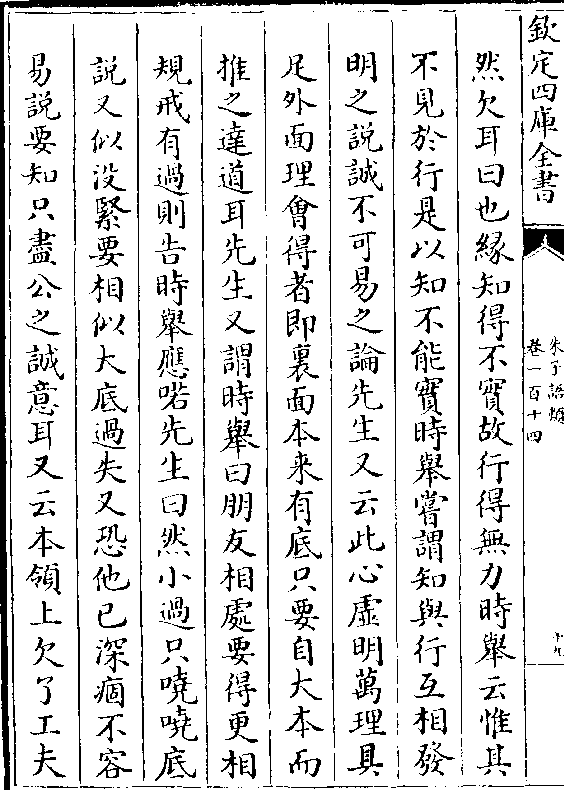 欽定四庫全書
朱子語類
卷一百十四
十九
然欠耳曰也緣知得不實故行得無力時舉云惟其
不見於行是以知不能實時舉嘗謂知與行互相發
明之說誠不可易之論先生又云此心虛明萬理具
足外面理會得者即裏面本來有底只要自大本而
推之達道耳先生又謂時舉曰朋友相處要得更相
規戒有過則告時舉應喏先生曰然小過只嘵嘵底
說又似没緊要相似大底過失又恐他已深痼不容
易說要知只盡公之誠意耳又云本領上欠了工夫